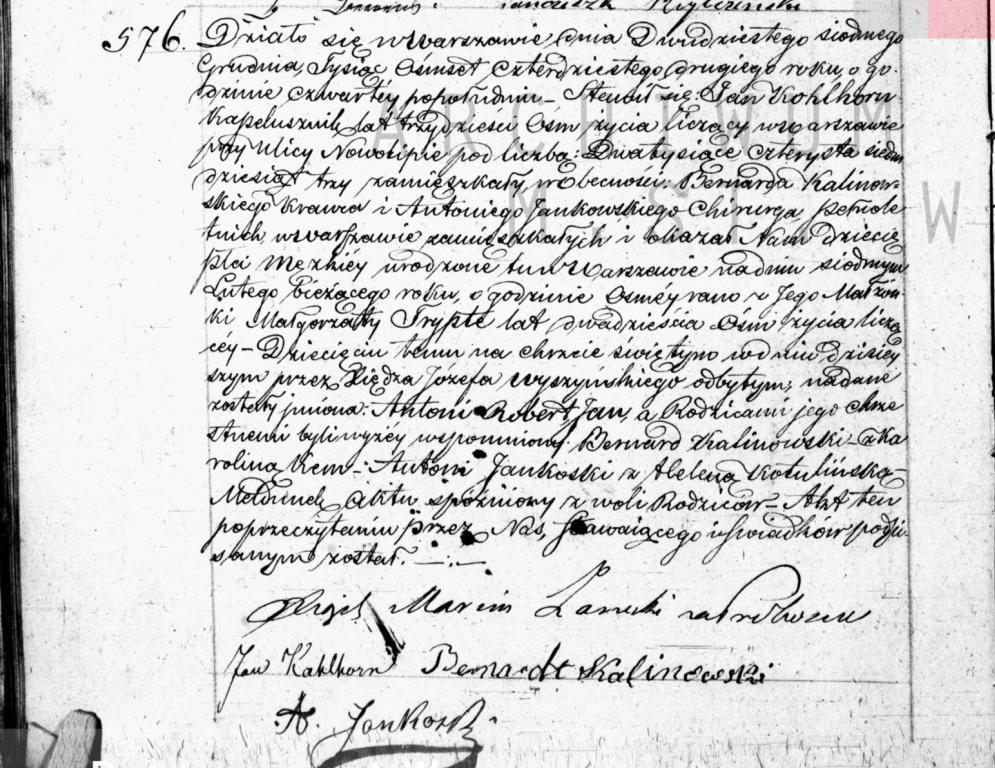 576. Działo się w Warszawie dnia Dwudziestego siódmego
Grudnia, Tysiąc Ośmset Czterdziestego drugiego roku, o go-
dzinie czwartéy popołudniu – Stawił się Jan Kohlhorn
Kapelusznik lat trzydzieści Ośm życia liczący w Warszawie
przy Ulicy Nowolipie pod liczbą: Dwatysiące czterysta siedm
dziesiąt trzy zamieszkały, w Obecności: Bernarda Kalinow-
skiego Krawca i Antoniego Jankowskiego Chirurga, pełnole
tnich, w Warszawie zamieszkałych i okazał Nam dziecię
płci męzkiéy urodzone tu w Warszawie na dniu siódmym
Lutego bieżącego roku, o godzinie Osméy rano z Jego Małżon
ki Małgorzaty Trypte lat dwadzieścia Ośm życia liczą
cey – Dziecięciu temu na chrzcie świętym w dniu dzisiey
szym przez Księdza Józefa Wyszyńskiego odbytym, nadane
zostały imiona: Antoni Robert Jan, a Rodzicami jego chrze
stnemi byli wyżéy wspomniony Bernard Kalinowski z Ka
roliną Kem – Antoni Jankoski z Heleną Kotulińską –
Meldunek aktu spóźniony z woli Rodziców – Akt ten
po przeczytaniu przez Nas, Stawaiącego i Świadków podpi-
sanym został.
Xiądz Marcin
Jan Kahlhorn Bernardt Kalinowski
A. Jankoski
ARCHIWUM
W